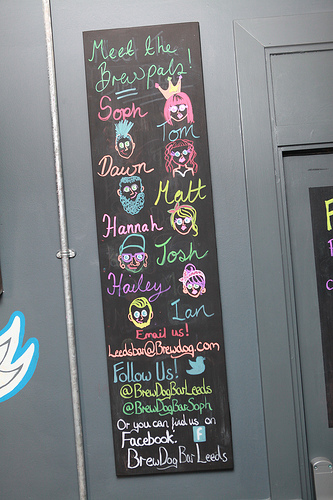 Meet the
Brewpals!
Soph
Tom
Dawn
Matt
Hannah
Josh
Hailey
Ian
Email us!
Leedsbar@Brewdog.com
Follow Us!
@BrewDogBarLeeds
@BrewDogBarSoph
Or you can find us on
Facebook. f
BrewDog Bar Leeds